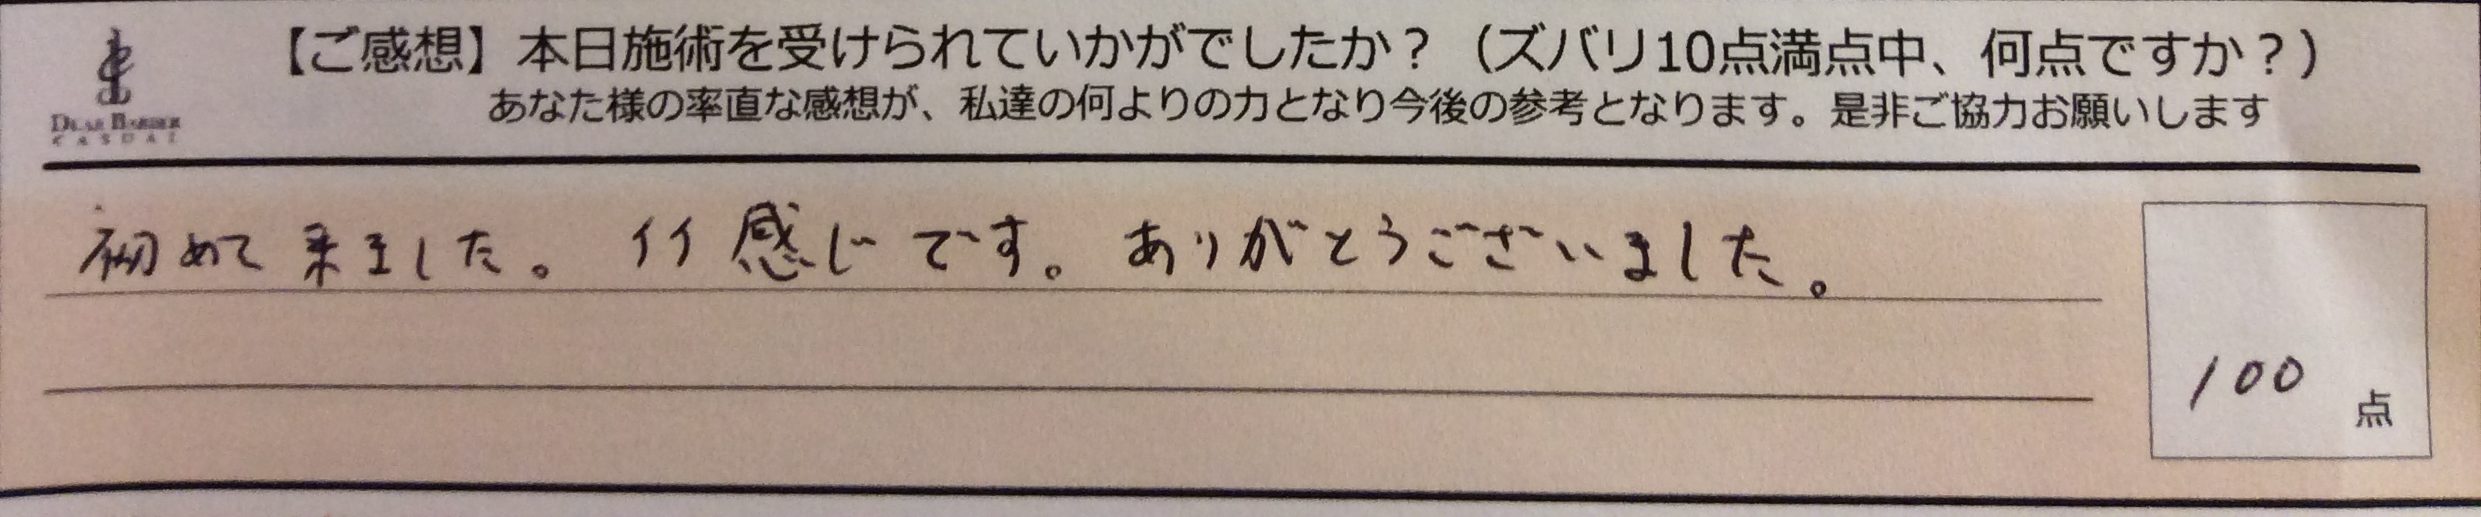 【ご感想】本日施術を受けられていかがでしたか？（ズバリ10点満点中、何点ですか？）
あなた様の率直な感想が、私達の何よりの力となり今後の参考となります。是非ご協力お願いします
DEAR BARBER
CASUAL
初めて来ました。イイ感じです。ありがとうございました。
100点